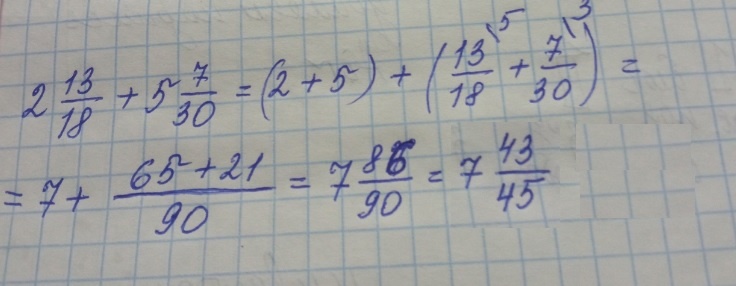 2 13/18 + 5 7/30 = (2 + 5) + (13/18 \5 + 7/30 \3) =
= 7 + (65 + 21)/90 = 7 86/90 = 7 43/45